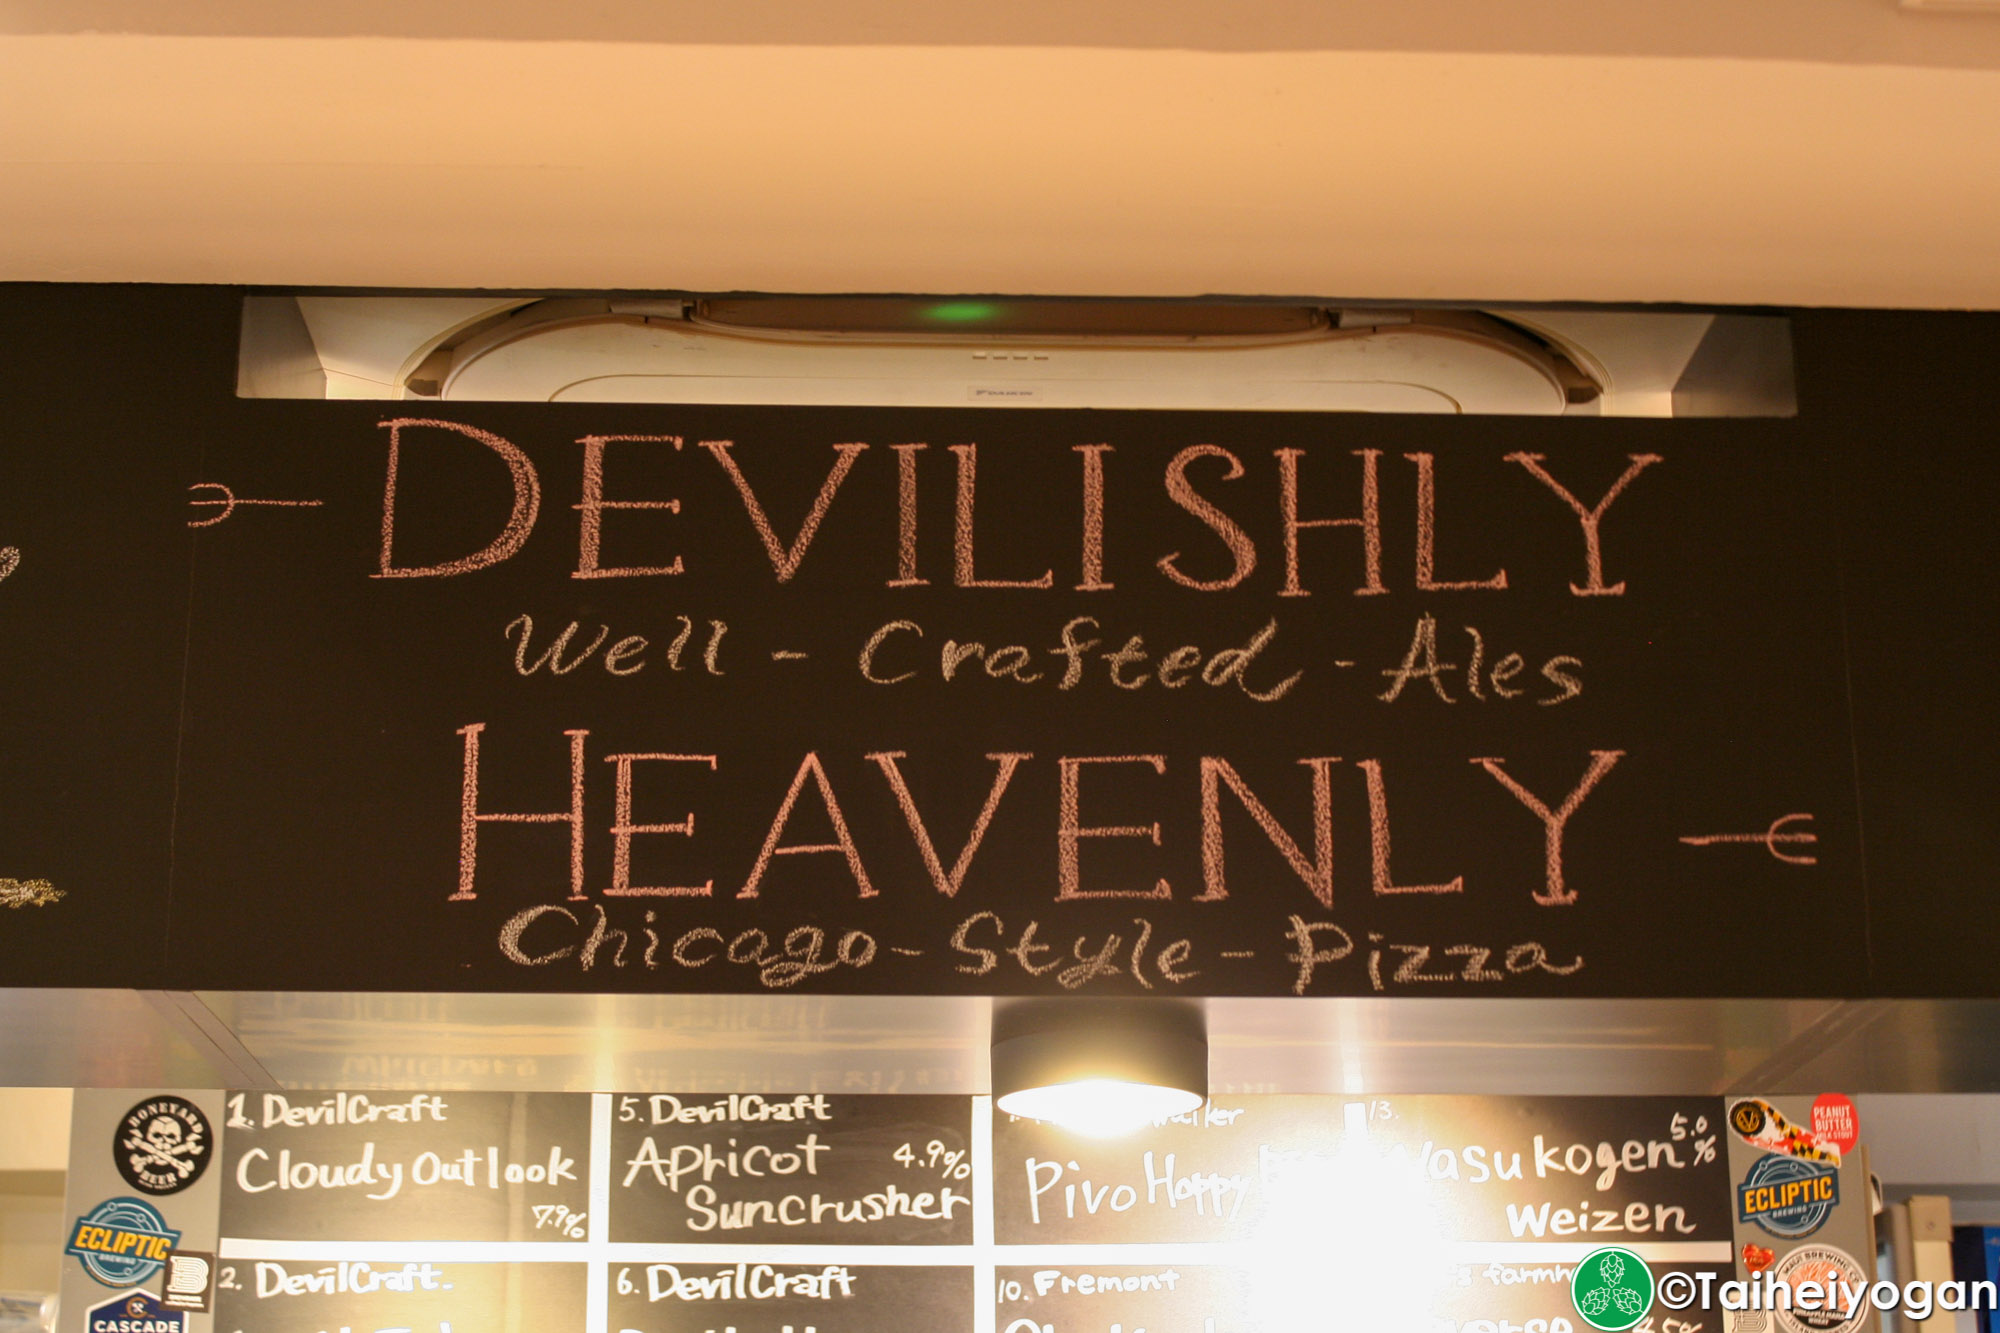 DAIKIN
DEVILISHLY
Well - Crafted - Ales
HEAVENLY
Chicago - Style - Pizza
1. DevilCraft
Cloudy Outlook
7.9%
5. DevilCraft
Apricot 4.9%
Suncrusher
Pivo Happy
13.
5.0
%
Wasukogen
Weizen
2. DevilCraft.
6. DevilCraft
10. Fremont
BONEYARD
BEER
ECLIPTIC
BREWING
CASCADE
PEANUT
BUTTER
MILK STOUT
ECLIPTIC
BREWING
MAUI BREWING CO
©Taiheiyogan